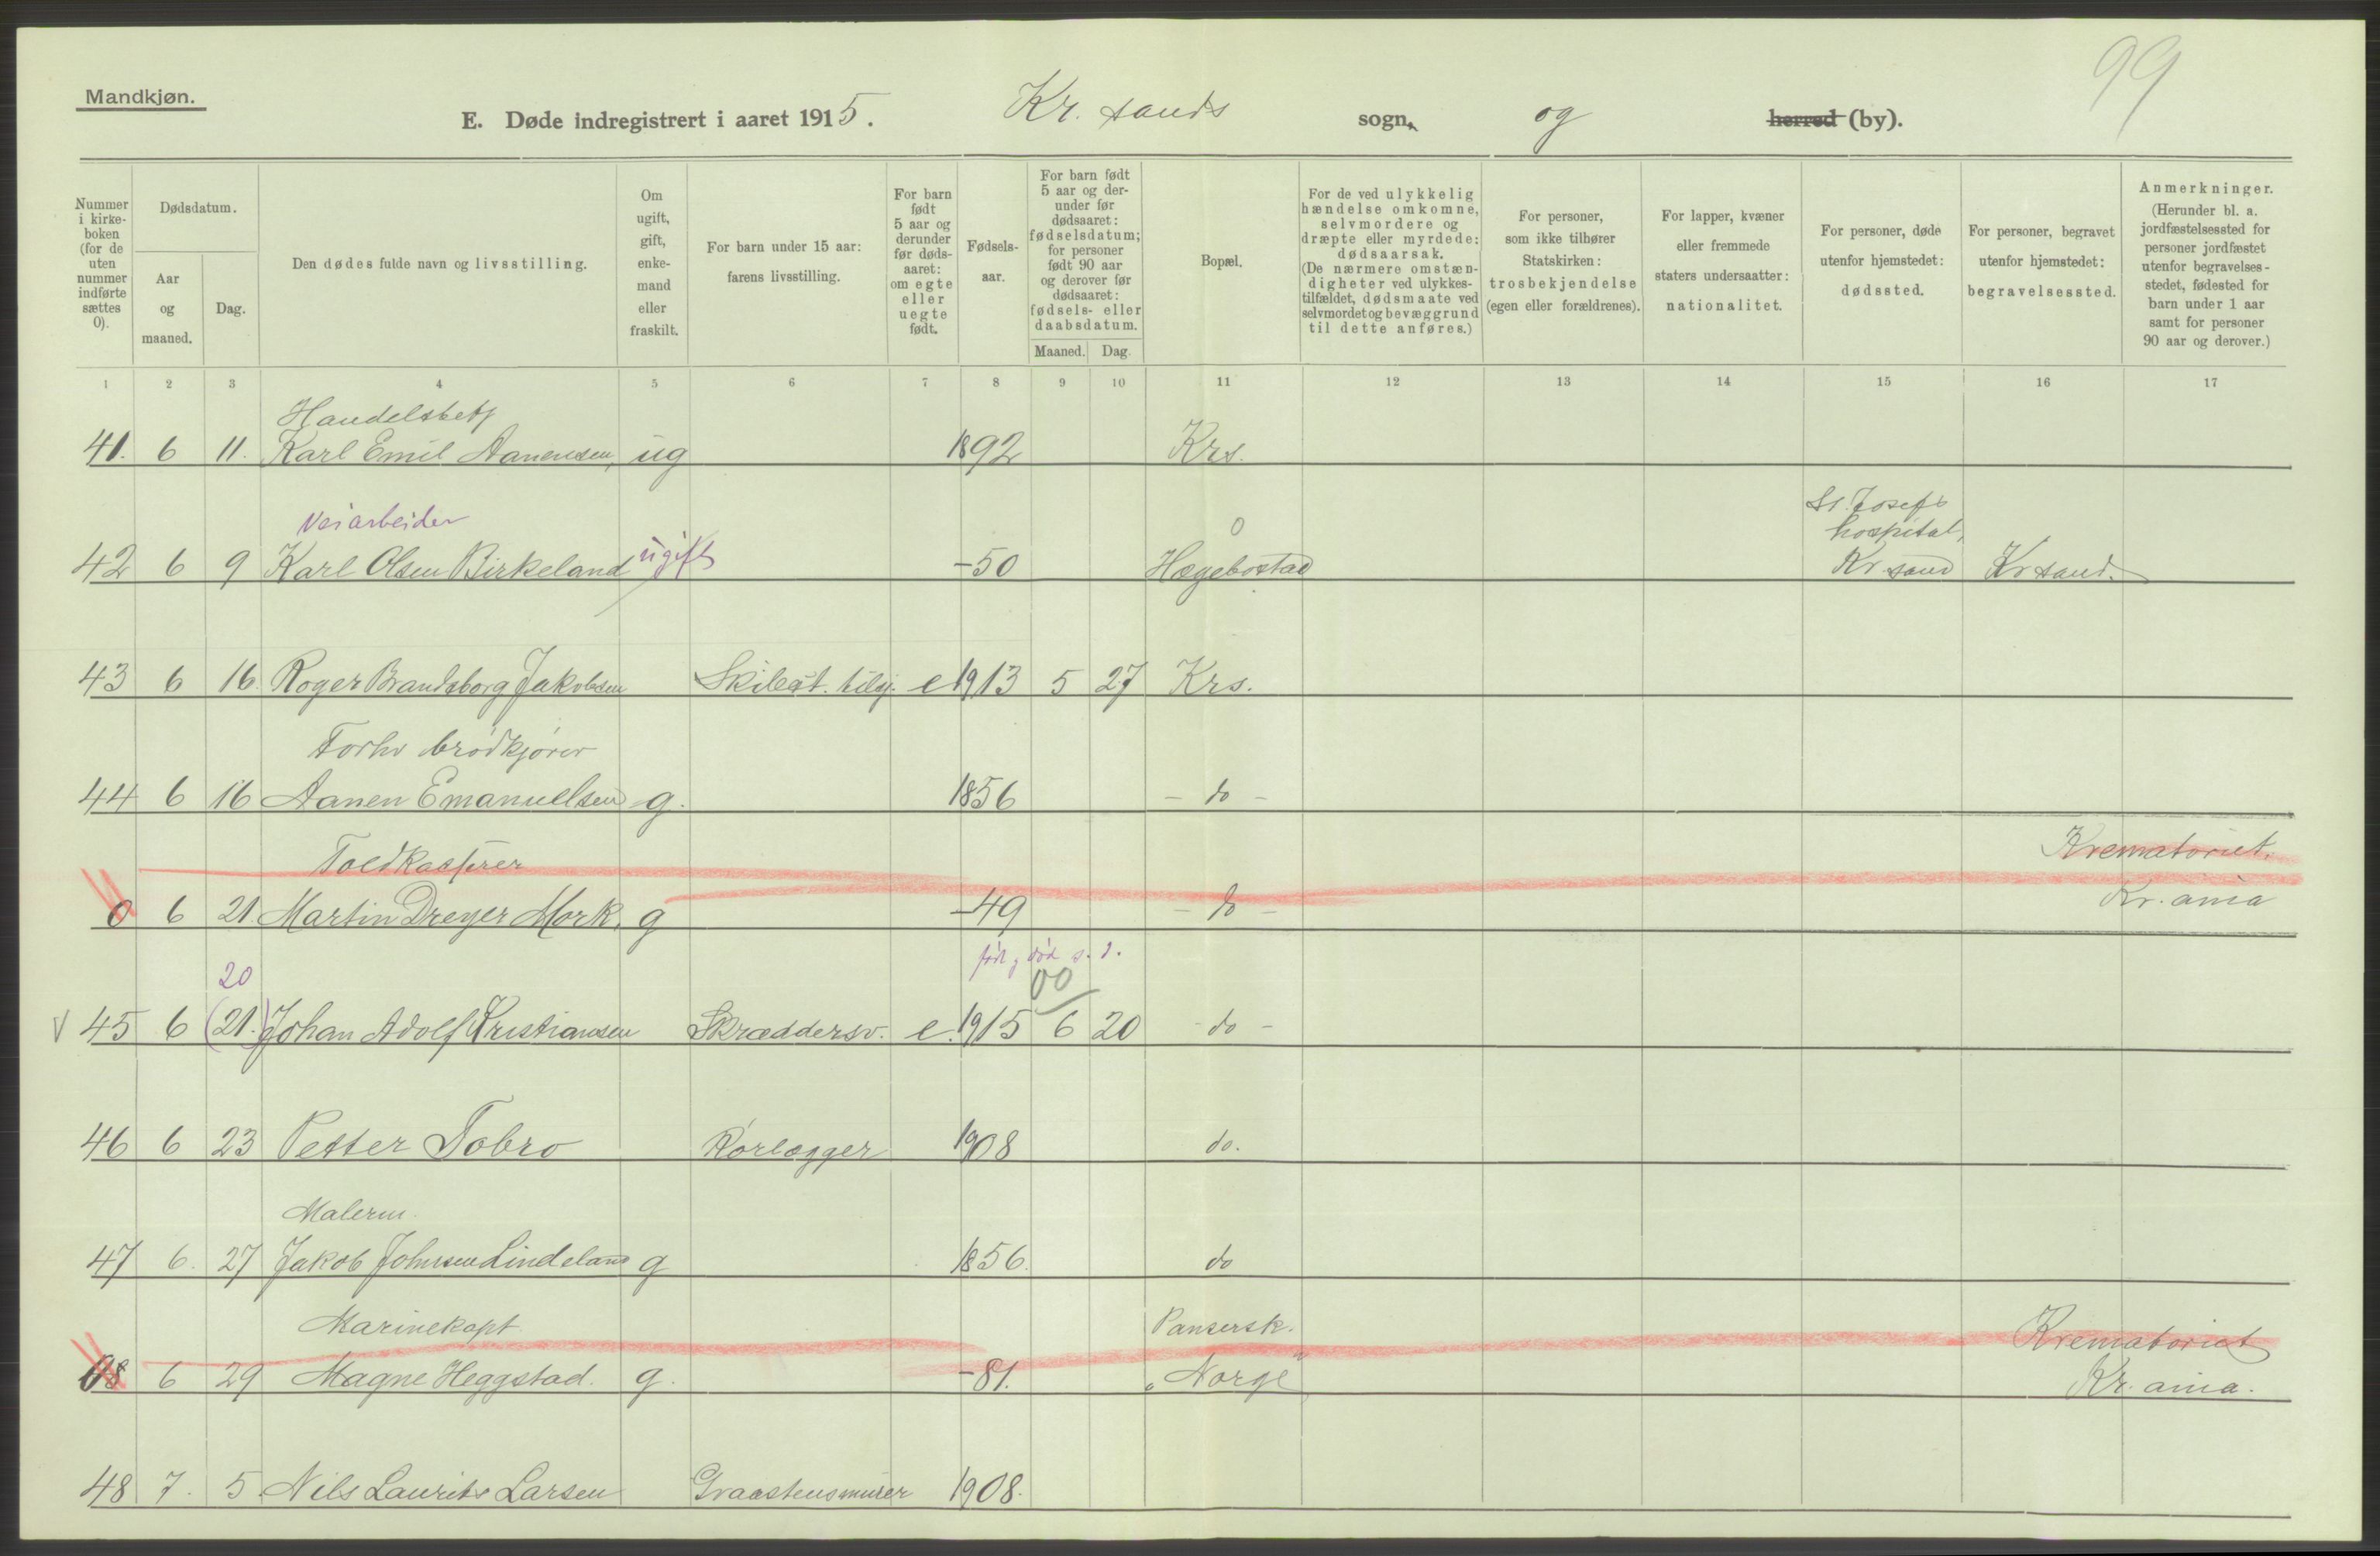 99
Mandkjøn.
E. Døde indregistrert i aaret 1915. Kr. sands sogn, og herred (by).
Nummer i kirkeboken (for de uten nummer indførte sættes 0).
Dødsdatum.
Aar og maaned.
Dag.
Den dødes fulde navn og livsstilling.
Om ugift, gift, enkemand eller fraskilt.
For barn under 15 aar: farens livsstilling.
For barn født 5 aar og derunder før dødsaaret: om egte eller uegte født.
Fødselsaar.
For barn født 5 aar og derunder før dødsaaret: fødselsdatum; for personer født 90 aar og derover før dødsaaret: fødsels- eller daabsdatum.
Maaned. Dag.
Bopæl.
For de ved ulykkelig hændelse omkomne, selvmordere og dræpte eller myrdede: dødsaarsak. (De nærmere omstændigheter ved ulykkestilfældet, dødsmaate ved selvmordet og bevæggrund til dette anføres.)
For personer, som ikke tilhører Statskirken: trosbekjendelse (egen eller forældrenes).
For lapper, kvæner eller fremmede staters undersaatter: nationalitet.
For personer, døde utenfor hjemstedet: dødssted.
For personer, begravet utenfor hjemstedet: begravelsessted.
Anmerkninger. (Herunder bl. a. jordfæstelsessted for personer jordfæstet utenfor begravelsesstedet, fødested for barn under 1 aar samt for personer 90 aar og derover.)
1 2 3 4 5 6 7 8 9 10 11 12 13 14 15 16 17
Handelsbetj
41. 6 11. Karl Emil Aanensen, ug 1892 Krs.
Veiarbeider 0 St. Josefs hospital,
42 6 9 Karl Olsen Birkeland ugift -50 Hægebostad Kr.sand Kr sand.
43 6 16. Roger Brandsborg Jakobsen Skibest. tilsj. e 1913 5 27 Krs.
Forhv brødkjører
44 6 16 Aanen Emanuelsen g. 1856 - do -
Toldkasserer Krematoriet.
0 6 21 Martin Dreyer Mork. g -49 - do - Kr. ania
20 født, død s. d. 00
V 45 6 (21.) Johan Adolf Kristiansen Skræddersv. e. 1915 6 20 - do -
46 6 23 Petter Tobro Rørlægger 1908 do.
Malerm.
47 6. 27 Jakob Johnsen Lindeland g 1856. do
Marinekapt. Pansersk. Krematoriet
08 6 29 Magne Heggstad. g. -81. "Norge" Kr. ania.
48 7. 5. Nils Laurits Larsen Graastensmurer 1908.